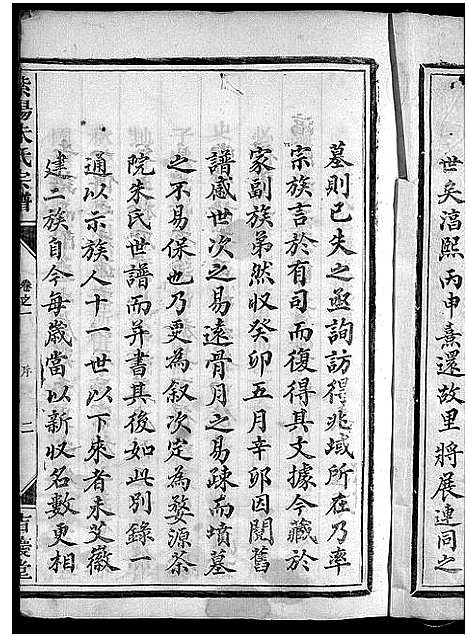 世矣淳熙丙申熹還故里將展連同之
墓則已失之亟詢訪得兆域所在乃率
宗族言於有司而復得其文據今藏於
家副族弟然収癸卯五月辛卯因閱舊
譜感世次之易遠骨月之易疎而墳墓
之不易保也乃更為叙次定為婺源茶
院朱氏世譜而并書其後如此別錄一
通以示族人十一世以下來者未艾徽
建二族自今每歲當以新収名數更相
紫陽朱氏宗譜
卷之一
序
二